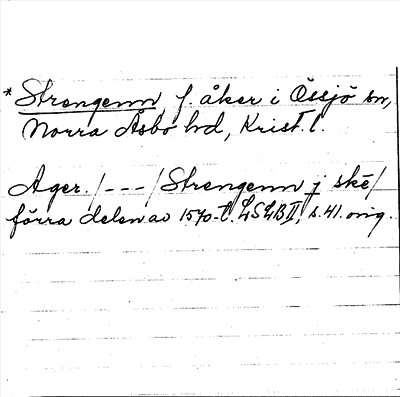 * Strengenn, f. åker i Össjö sn,
Norra Åsbo hd, Krist. l.
Ager. /---/ Strengenn j ské/
förra delen av 1570-t. LSLB II, s. 41. orig.